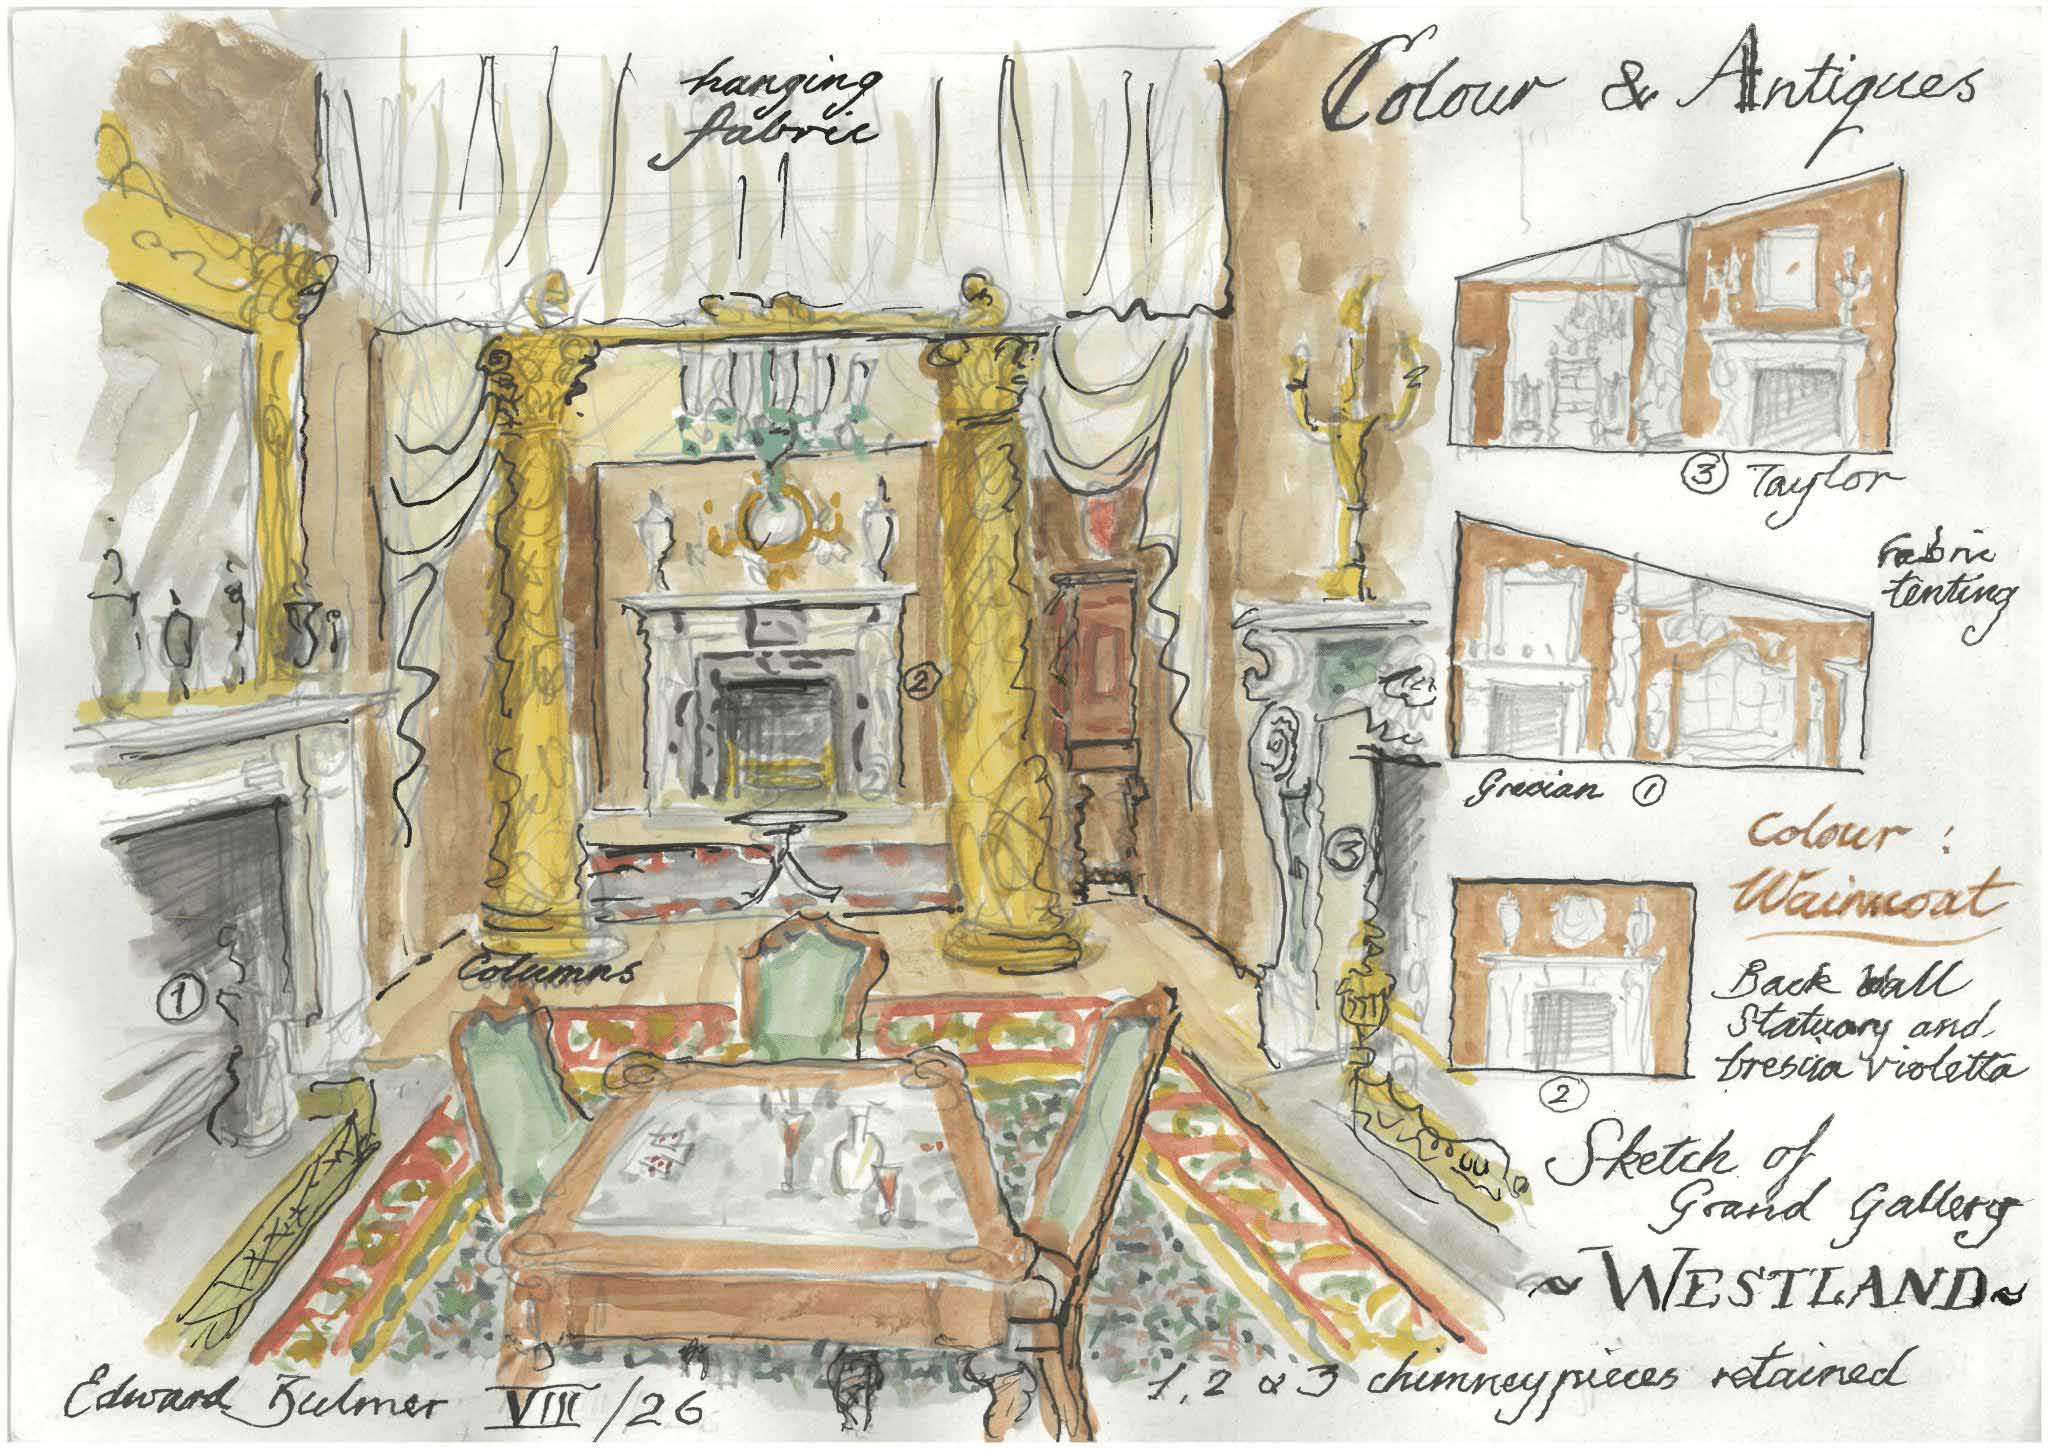 Colour & Antiques
hanging
fabric
③ Taylor
Fabric
tenting
Grecian ①
Colour :
Wainscoat
Back Wall
Statuary and
brescia violetta
②
Sketch of
Grand Gallery
~ WESTLAND ~
1, 2 & 3 chimneypieces retained
②
③
①
Columns
Edward Bulmer VIII/26